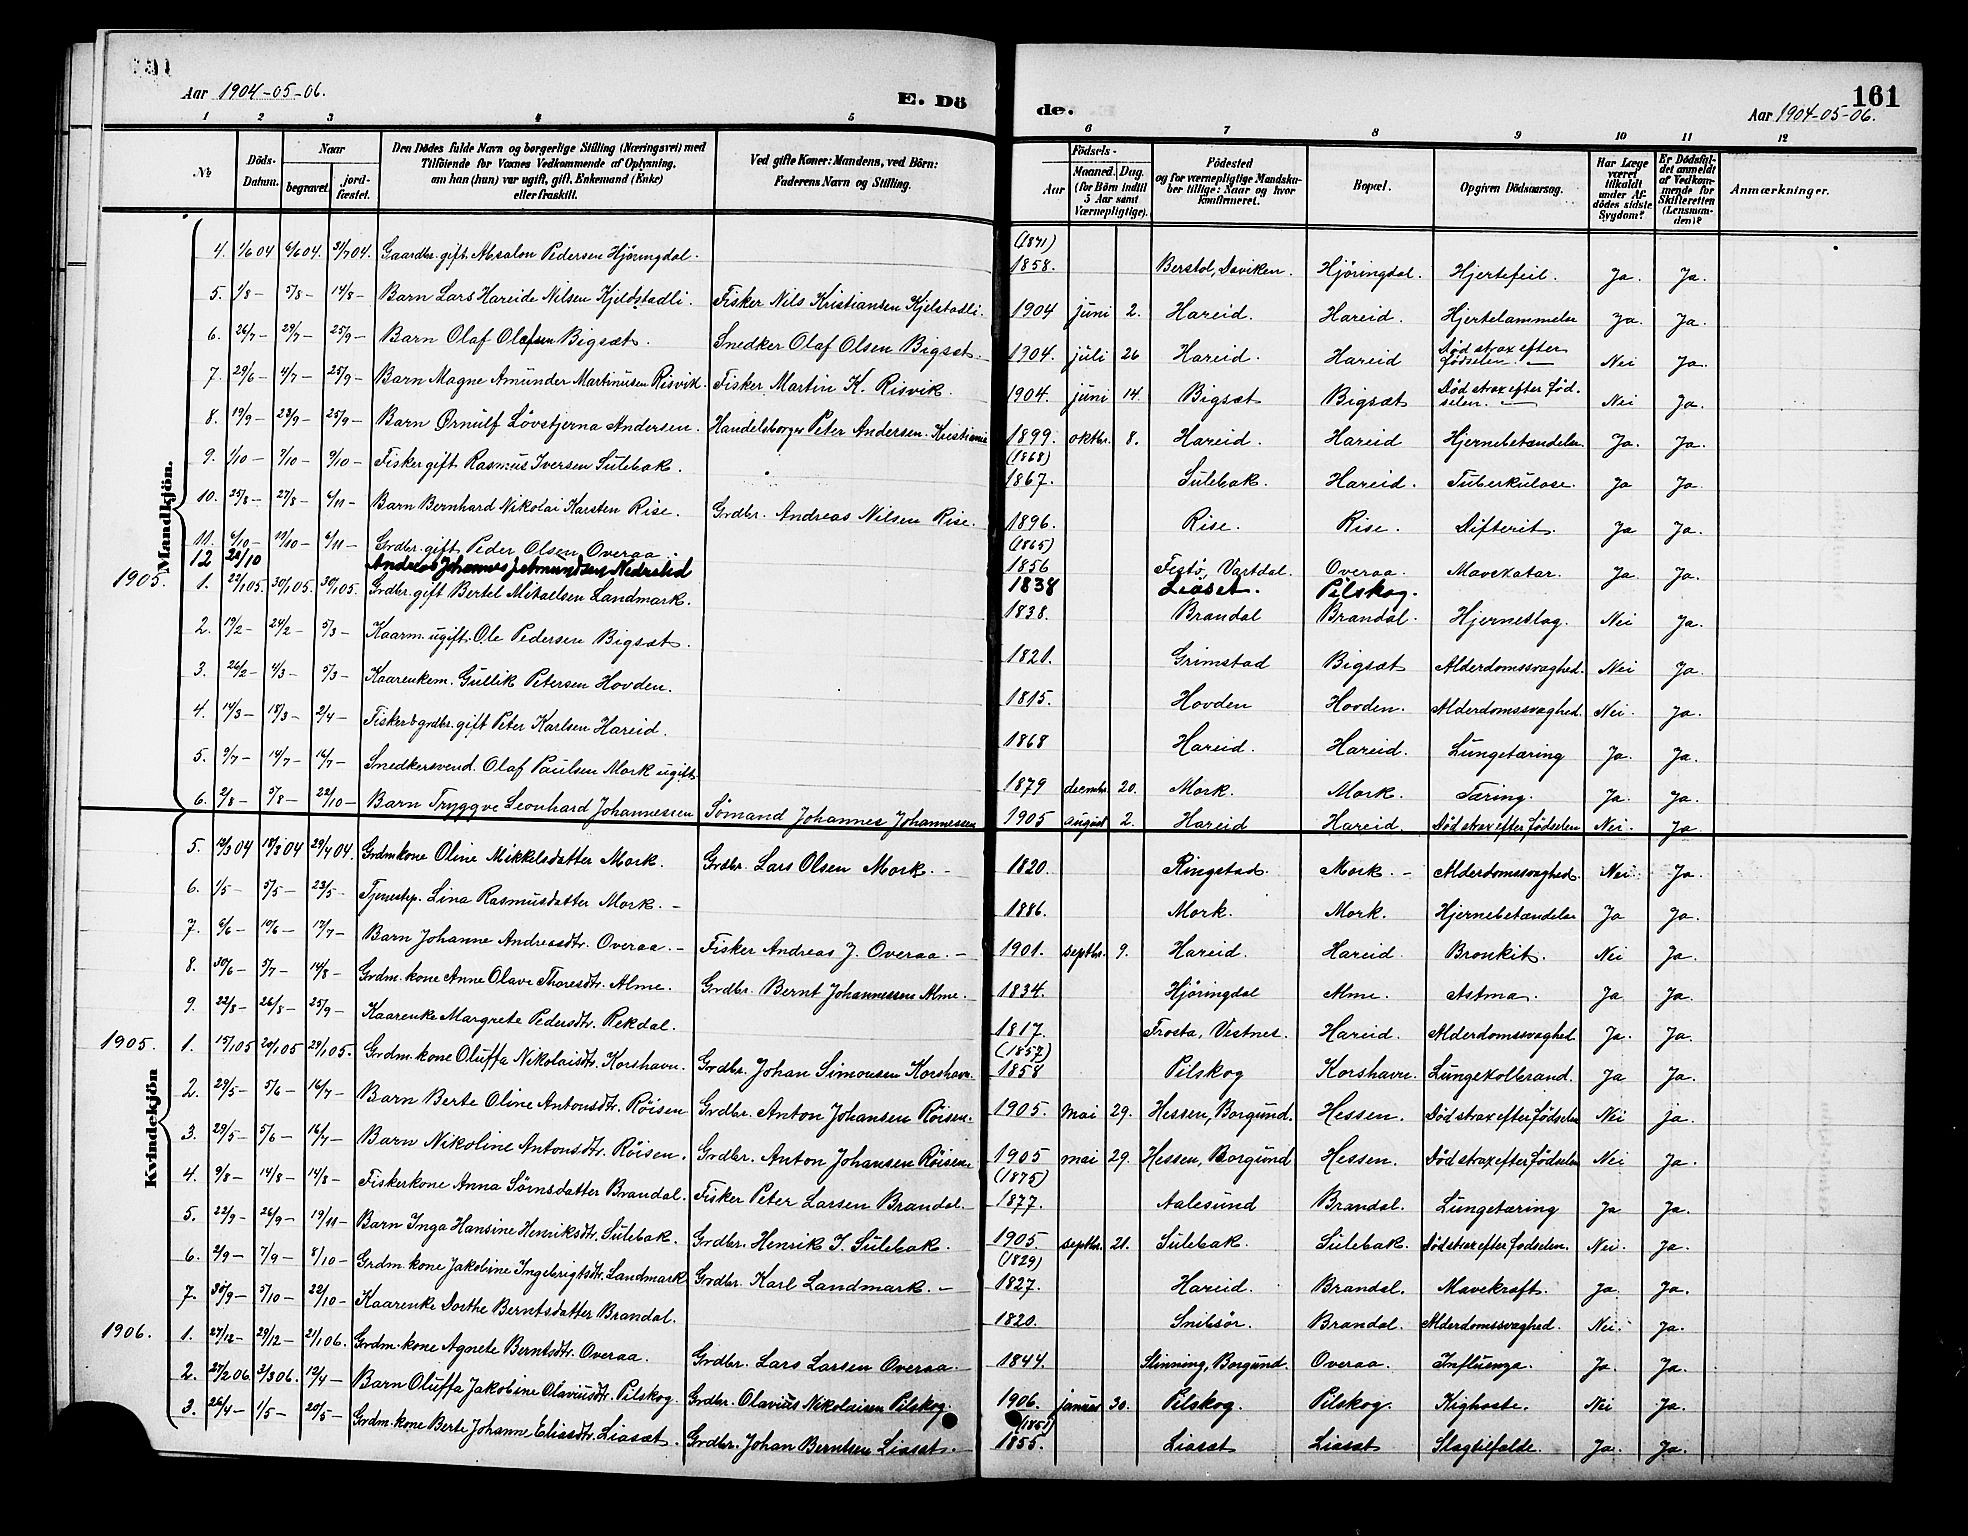 Aar 1904-05-06.
E. Dö
de.
161
Aar 1904-05-06.
1 2 3 4 5 6 7 8 9 10 11 12
No
Döds-Datum.
Naar
begravet.
jord-fæstet.
Den Dödes fulde Navn og borgerlige Stilling (Næringsvei) med Tilföiende for Voxnes Vedkommende af Oplysning, om han (hun) var ugift, gift, Enkemand (Enke) eller fraskilt.
Ved gifte Koner: Mandens, ved Börn: Faderens Navn og Stilling.
Födsels-
Aar
Maaned. Dag.
(for Börn indtil 5 Aar samt Værnepligtige).
Födested og for værnepligtige Mandskaber tillige: Naar og hvor konfirmeret.
Bopæl.
Opgiven Dödsaarsag.
Har Læge været tilkaldt under Afdödes sidste Sygdom?
Er Dödsfaldet anmeldt af Vedkommende for Skifteretten (Lensmanden)?
Anmærkninger.
Mandkjön.
4. 1/6 04 6/6 04. 31/7 04. Gaardbr. gift Absalon Pedersen Hjöringdal. (1871) 1858. Berstol, Daviken. Hjöringdal. Hjertefeil. Ja. Ja.
5. 1/8 - 5/8 - 14/8 - Barn Lars Hareide Nilsen Kjeldstadli. Fisker Nils Kristiansen Kjelstadli. 1904 juni 2. Hareid. Hareid. Hjertelammelse Ja. Ja.
6. 26/7 - 29/7 - 25/9 - Barn Olaf Olafsen Bigsæt. Snedker Olaf Olsen Bigsæt. 1904. juli 26 Hareid. Hareid Död strax efter födselen. Nei Ja.
7. 29/6 - 4/7 - 25/9 - Barn Magne Amunder Martinusen Risvik. Fisker Martin K. Risvik. 1904. juni 14. Bigsæt Bigsæt Död strax efter födselen. Nei Ja.
8. 19/9 - 23/9 - 25/9 - Barn Ørnulf Lövstjerna Andersen. Handelsborger Peter Andersen. Kristiania 1899. oktbr. 8. Hareid. Hareid Hjernebetændelse Ja. Ja.
9. 1/10 - 7/10 - 9/10 - Fisker gift Rasmus Iversen Sulebak. (1868) 1867. Sulebak. Hareid. Tuberkulose. Ja Ja.
10. 25/8 - 27/8 - 6/11 - Barn Bernhard Nikolai Karsten Rise. Grdbr. Andreas Nilsen Rise. 1896. Rise. Rise. Difterit. Ja Ja.
11. 6/10 - 19/10 - 6/11 - Grdbr. gift Peder Olsen Overaa. (1865) 1856 Festö, Vartdal. Overaa. Mavekatar. Ja. Ja.
12 24/10 Andreas Johannes Jetmundsen Nedrelid 1838 Liaset. Pilskog.
1905. 1. 22/1 05. 30/1 05. 30/1 05. Grdbr. gift Bertel Mikaelsen Landmark. 1838. Brandal Brandal. Hjerneslag. Nei Ja.
2. 19/2 - 24/2 - 5/3 - Kaarm. ugift. Ole Pedersen Bigsæt. 1821. Grimstad Bigsæt Alderdomssvaghed. Nei Ja.
3. 26/2 - 4/3 - 5/3 - Kaarenkem. Gullik Petersen Hovden. 1815. Hovden Hovden. Alderdomssvaghed. Nei. Ja.
4. 14/3 - 18/3 - 2/4 - Fisker & grdbr. gift Peter Karlsen Hareid. 1868 Hareid. Hareid. Lungetæring Ja. Ja.
5. 9/7 - 14/7 - 16/7 - Snedkersvend. Olaf Paulsen Mork ugift 1879 decmbr. 20. Mork. Mork. Tæring. Ja. Ja.
6. 2/8 - 5/8 - 22/10 - Barn Tryggve Leonhard Johannessen Sömand Johannes Johannessen 1905 august 2. Hareid Hareid. Död strax efter födselen Nei. Ja
Kvindekjön
5. 12/3 04 18/3 04 29/4 04. Grdm. kone Oline Mikkelsdatter Mork. Grdbr. Lars Olsen Mork. - 1820. Ringstad. Mork. - Alderdomssvaghed. Nei. Ja.
6. 1/5 - 5/5 - 23/5 - Tjenestep. Lina Rasmusdatter Mork. - 1886. Mork. Mork. Hjernebetændelse Ja Ja.
7. 6/6 - 10/6 - 17/7 - Barn Johanne Andreasdtr. Overaa. - Fisker Andreas J. Overaa. - 1901. septbr. 9. Hareid. Hareid. Bronkit. Nei Ja.
8. 30/6 - 5/7 - 14/8 - Grdm. kone Anne Olave Thoresdtr. Alme. Grdbr. Bernt Johannessen Alme. 1834. Hjöringdal Alme. Astma. Ja Ja.
9. 22/8 - 26/8 - 25/9 - Kaarenke Margrete Pedersdtr. Rekdal. 1817. Frosta, Vestnes. Hareid. Alderdomssvaghed Ja. Ja.
1905. 1. 15/1 05 20/1 05 29/1 05. Grdm. kone Oluffa Nikolaisdtr. Korshavn. Grdbr. Johan Simonsen Korshavn. (1857) 1858 Pilskog Korshavn. Lungekolbrand. Ja Ja.
2. 29/5 - 5/6 - 16/7 - Barn Berte Oline Antonsdtr. Röisen Grdbr. Anton Johansen Röisen. 1905. mai 29. Hessen, Borgund. Hessen. Död strax efter födselen Nei ja.
3. 29/5 - 5/6 - 16/7 - Barn Nikoline Antonsdtr. Röisen. Grdbr. Anton Johansen Röisen. 1905 mai 29. Hessen, Borgund Hessen. Död strax efter födselen Nei Ja.
4. 9/8 - 14/8 - 14/8 - Fiskerkone Anna Sörnsdatter Brandal. Fisker Peter Larsen Brandal. (1875) 1877. Aalesund Brandal. Lungetæring Ja Ja.
5. 22/9 - 26/9 - 19/11 - Barn Inga Hansine Henriksdtr. Sulebak. Grdbr. Henrik I. Sulebak. 1905. septbr. 21. Sulebak. Sulebak. Död strax efter födselen. Nei. Ja.
6. 2/9 - 7/9 - 8/10 - Grdm. kone Jakobine Ingebrigtsdtr. Landmark Grdbr. Karl Landmark. - (1829) 1827. Hareid. Brandal. Mavekræft. Ja. Ja.
7. 30/9 - 5/10 - 22/10 - Kaarenke Dorthe Berntsdatter Brandal. 1820. Snibsör. Brandal. Alderdomssvaghed. Nei. Ja.
1906. 1. 24/12 - 29/12 - 21/1 06. Grdm. kone Agnete Berntsdtr. Overaa. Grdbr. Lars Larsen Overaa. 1844. Slinning, Borgund. Overaa. Influenza. Ja. Ja.
2. 27/2 06. 3/3 06. 12/4 - Barn Oluffa Jakobine Olaviusdtr. Pilskog. Grdbr. Olavius Nikolaisen Pilskog. 1906. januar 30. Pilskog. Pilskog. Kighoste. Nei Ja.
3. 26/4 - 1/5 - 20/5 - Grdm. kone Berte Johanne Eliasdtr. Liasæt. Grdbr. Johan Berntsen Liasæt. (1851) 1855. Liasæt Liasæt Slagtilfælde. Ja. Ja.